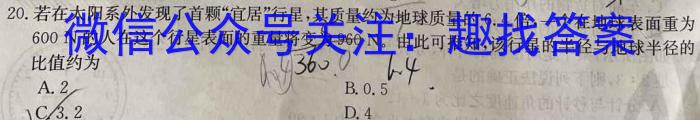 20. 若在太阳系外发现了首颗“宜居”行星,其质量约为地球质量的 在地球表面重为
600 的人在这个行星表面的重量将变为960 N。由此可推知,该行星的半径与地球半径的
比值约为
微信公众号关注：趣找答案
360.0 6.4
A. 2 B. 0.5
C. 3.2 D. 4